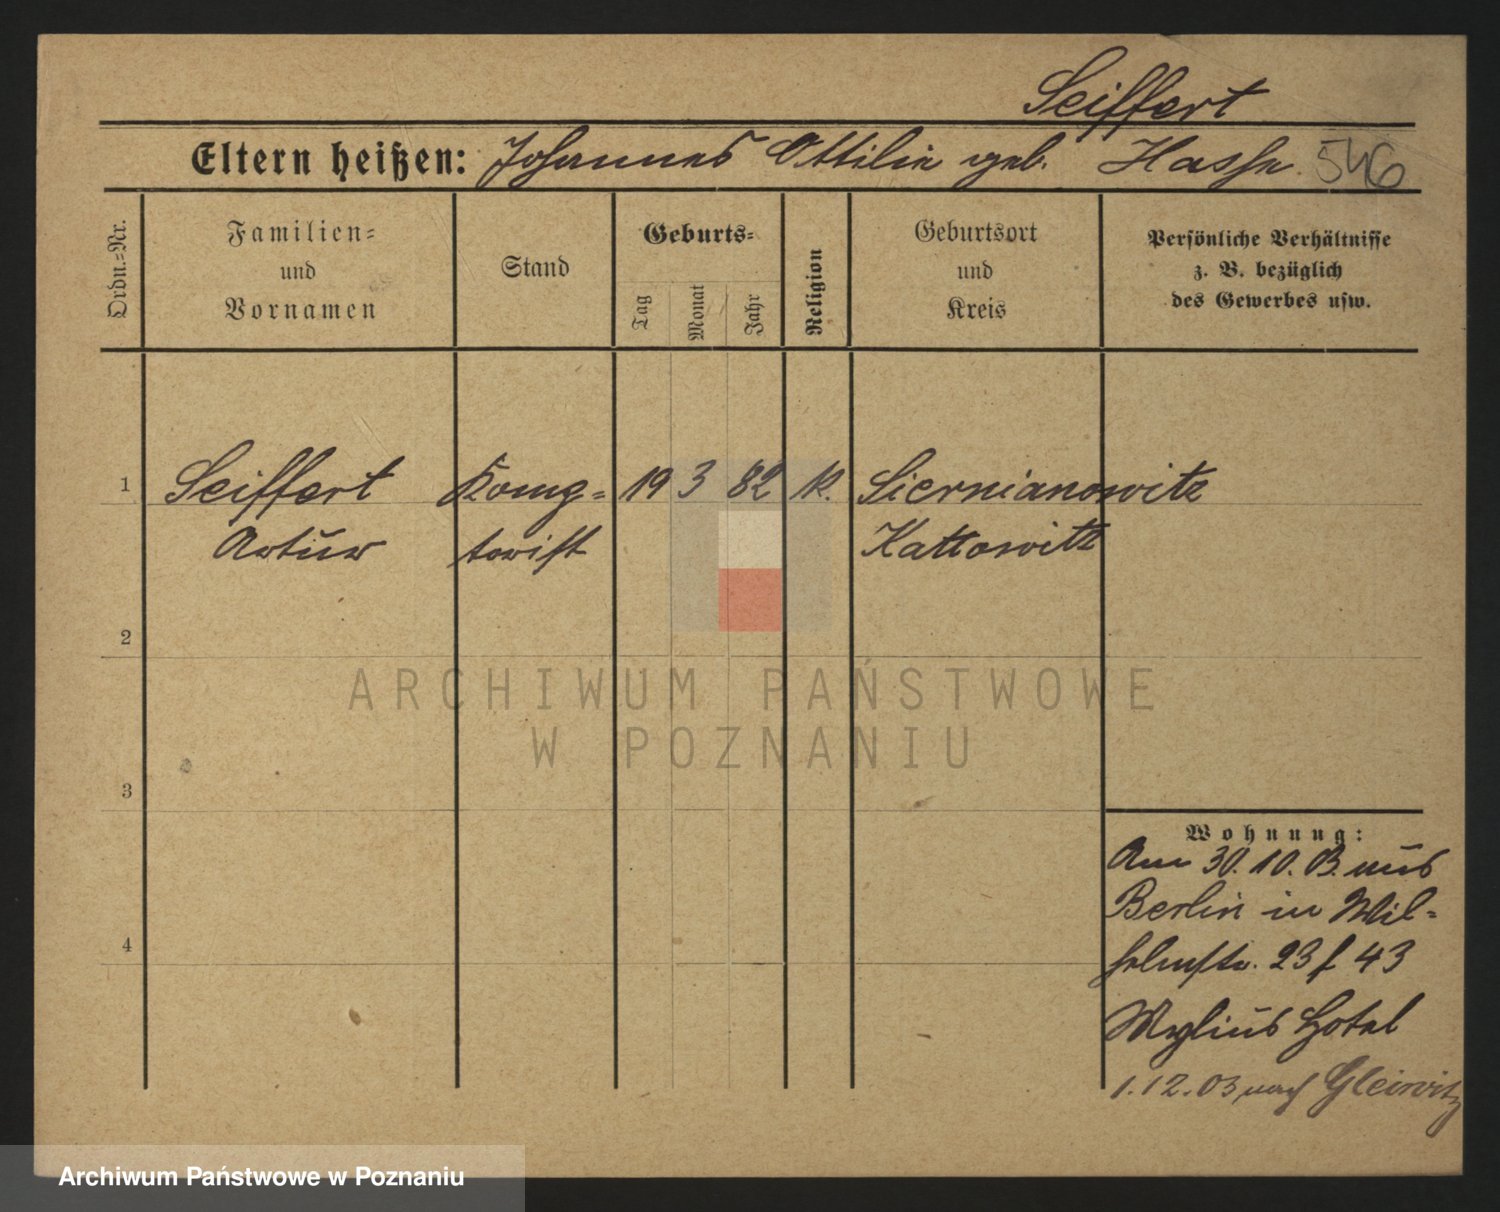 Seiffert
Eltern heißen: Johannes Ottilie geb. Hasse 546
Ordn.-Nr.
Familien-
und
Vornamen
Stand
Geburts-
Tag
Monat
Jahr
Religion
Geburtsort
und
Kreis
Persönliche Verhältnisse
z. B. bezüglich
des Gewerbes usw.
1 Seiffert 19 3 82 k. Siernianowitz
Artur Kattowitz
2
ARCHIWUM PAŃSTWOWE
W POZNANIU
3
Wohnung:
Am 30.10.03. aus
Berlin in Wil-
helmstr. 23 f 43
4
Mylius Hotel
1.12.03 nach Gleiwitz
Archiwum Państwowe w Poznaniu